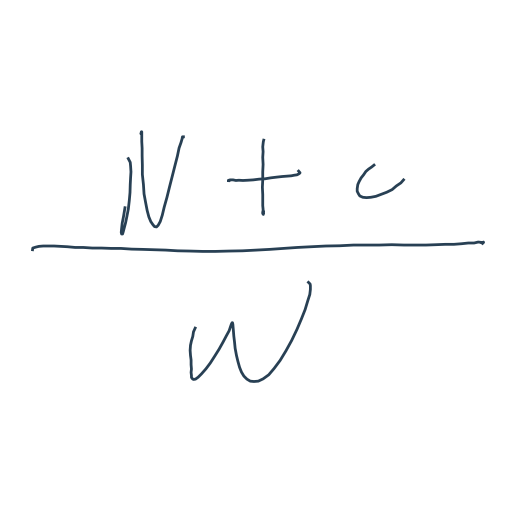 N + c
W